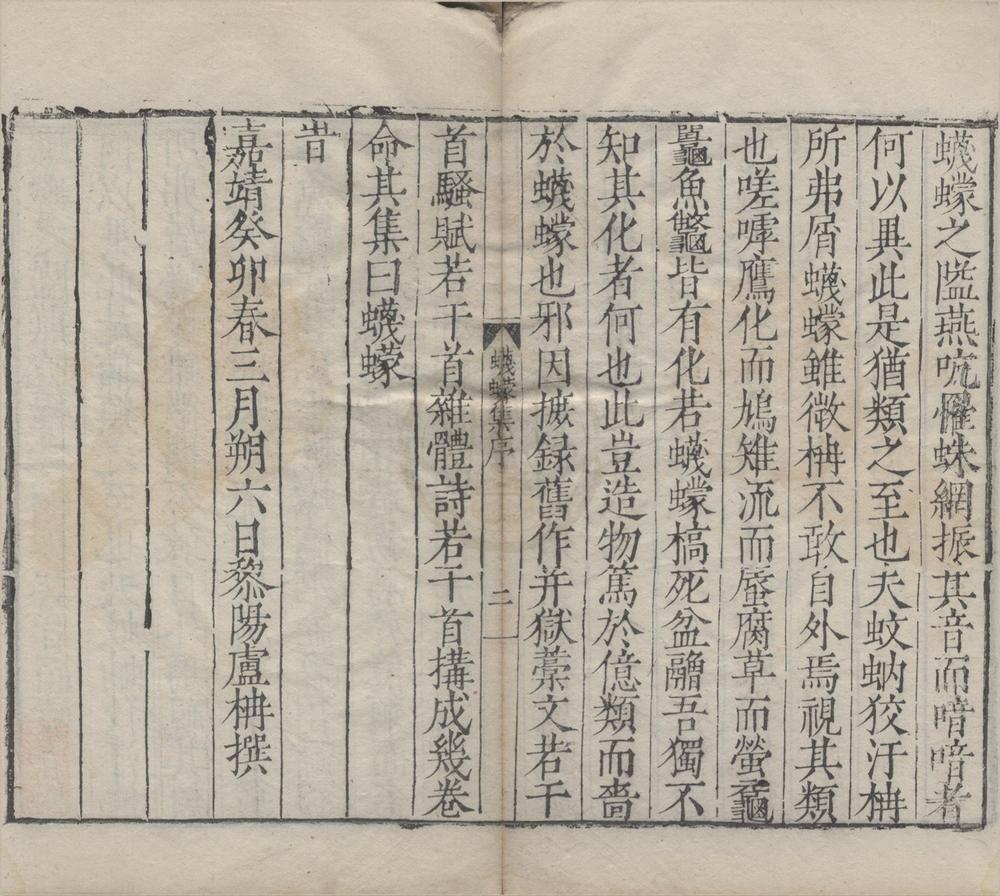 蠛蠓之隘燕吭懼蛛網振其音而喑喑者
何以異此是猶類之至也夫蚊蚋狡汙柟
所弗屑蠛蠓雖微柟不敢自外焉視其類
也嗟嘑鷹化而鳩雉流而蜃腐草而螢
魚皆有化若蠛蠓槁死盆罋吾獨不
知其化者何也此豈造物篤於億類而嗇
於蠛蠓也邪因摭録舊作并獄藳文若干
蠛蠓集序
二
首騷賦若干首雜體詩若干首搆成幾卷
命其集曰蠛蠓
旹
嘉靖癸卯春三月朔六日黎陽盧柟撰